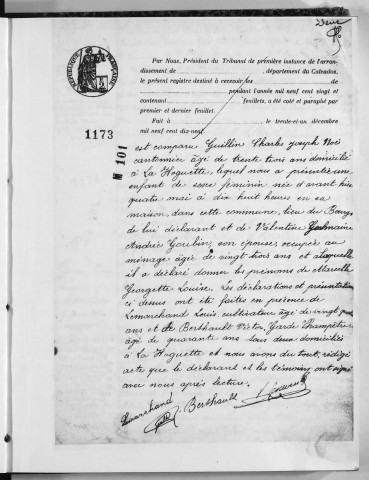 RÉPUBLIQUE FRANÇAISE
Par Nous, Président du Tribunal de première instance de l'arron-
dissement de , département du Calvados,
le présent registre destiné à recevoir les de
pendant l'année mil neuf cent vingt et
contenant feuillets, a été coté et paraphé par
premier et dernier feuillet.
Fait à , le trente-et-un décembre
mil neuf cent dix-neuf.
1173
N 101
est comparu Guillin Charles Joseph Noë
cantonnier âgé de trente trois ans domicilié
à La Hoguette lequel nous a présenté une
enfant de sexe féminin née d'avant hier
quatre mai à dix huit heures en sa
maison, dans cette commune, lieu du Bourg
de lui déclarant et de Valentine Germaine
Andrée Goubin, son épouse, occupée au
ménage âgée de vingt trois ans et à laquelle
il a déclaré donner les prénoms de Marcelle
Georgette Louise. Les déclarations et présentation
ci dessus ont été faites en présence de
Lemarchand Louis, cultivateur âgé de vingt
ans et de Berthault Victor, Garde Champêtre
âgé de quarante ans tous deux domiciliés
à La Hoguette et nous avons du tout, rédigé
acte que le déclarant et les témoins ont signé
avec nous après lecture.
Lemarchand Berthault